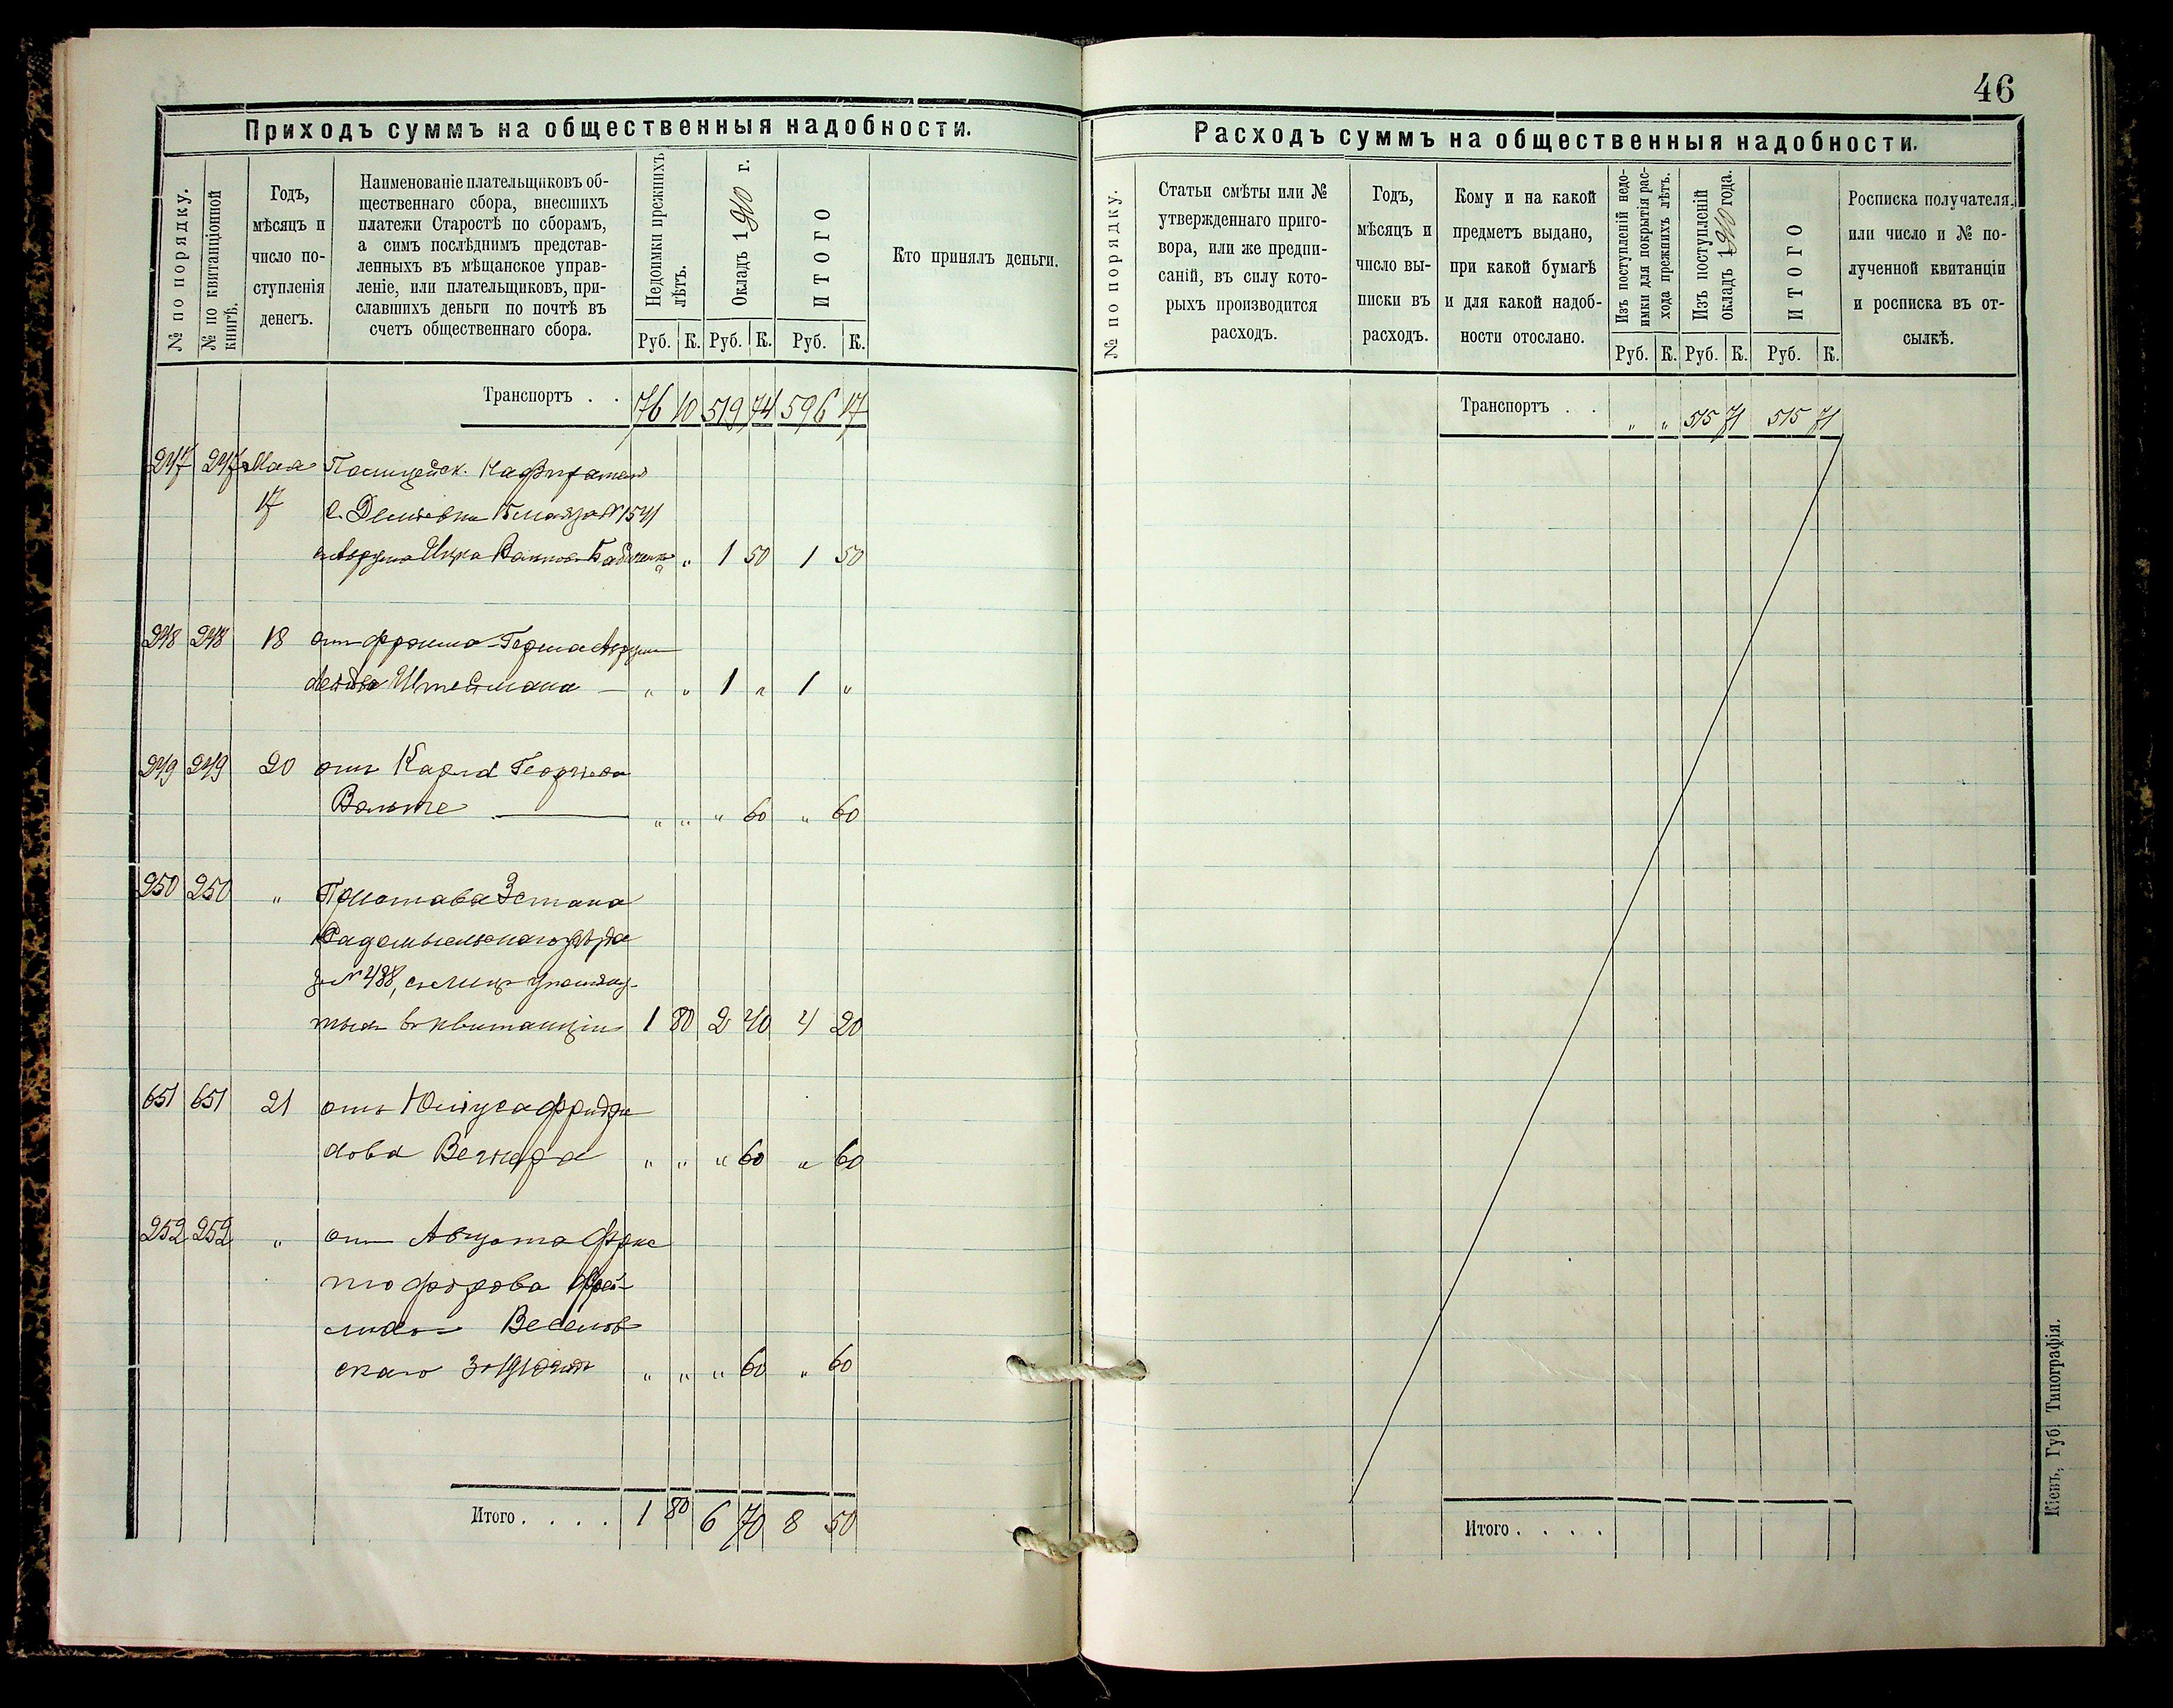 46
Приходъ суммъ на общественныя надобности.
№ по порядку.
№ по квитанціонной книгѣ.
Годъ,
мѣсяцъ и
число по-
ступленія
денегъ.
Наименованіе плательщиковъ об-
щественнаго сбора, внесшихъ
платежи Старостѣ по сборамъ,
а симъ послѣднимъ представ-
ленныхъ въ мѣщанское управ-
леніе, или плательщиковъ, при-
славшихъ деньги по почтѣ въ
счетъ общественнаго сбора.
Недоимки прежнихъ лѣтъ.
Окладъ 1910 г.
ИТОГО
Кто принялъ деньги.
Руб. К. Руб. К. Руб. К.
Транспортъ . . 76 10 519 74 596 17
247 247 Мая
17 с. №1541
" 1 50 1 50
248 248 18 от
Штеймана — " " 1 " 1 "
249 249 20 отъ Карла
Вольте — " " " 60 " 60
250 250 " Пристава 3 стана
Радомысльскаго уѣзда
№ 488, съ лицъ
въ квитанціи 1 80 2 40 4 20
651 651 21 отъ Юліуса Фридри
хова Вегнера " " " 60 " 60
252 252 " от Августа Фрис
тофорова
Веселов
скаго " " " 60 " 60
Итого. . . . 1 80 6 70 8 50
Расходъ суммъ на общественныя надобности.
№ по порядку.
Статьи смѣты или №
утвержденнаго приго-
вора, или же предпи-
саній, въ силу кото-
рыхъ производится
расходъ.
Годъ,
мѣсяцъ и
число вы-
писки въ
расходъ.
Кому и на какой
предметъ выдано,
при какой бумагѣ
и для какой надоб-
ности отослано.
Изъ поступленій недо-
имки для покрытія рас-
хода прежнихъ лѣтъ.
Изъ поступленій
окладъ 1910 года.
ИТОГО
Росписка получателя,
или число и № по-
лученной квитанціи
и росписка въ от-
сылкѣ.
Руб. К. Руб. К. Руб. К.
Транспортъ . . " " 515 71 515 71
Итого . . . .
Кіевъ, Губ. Типографія.